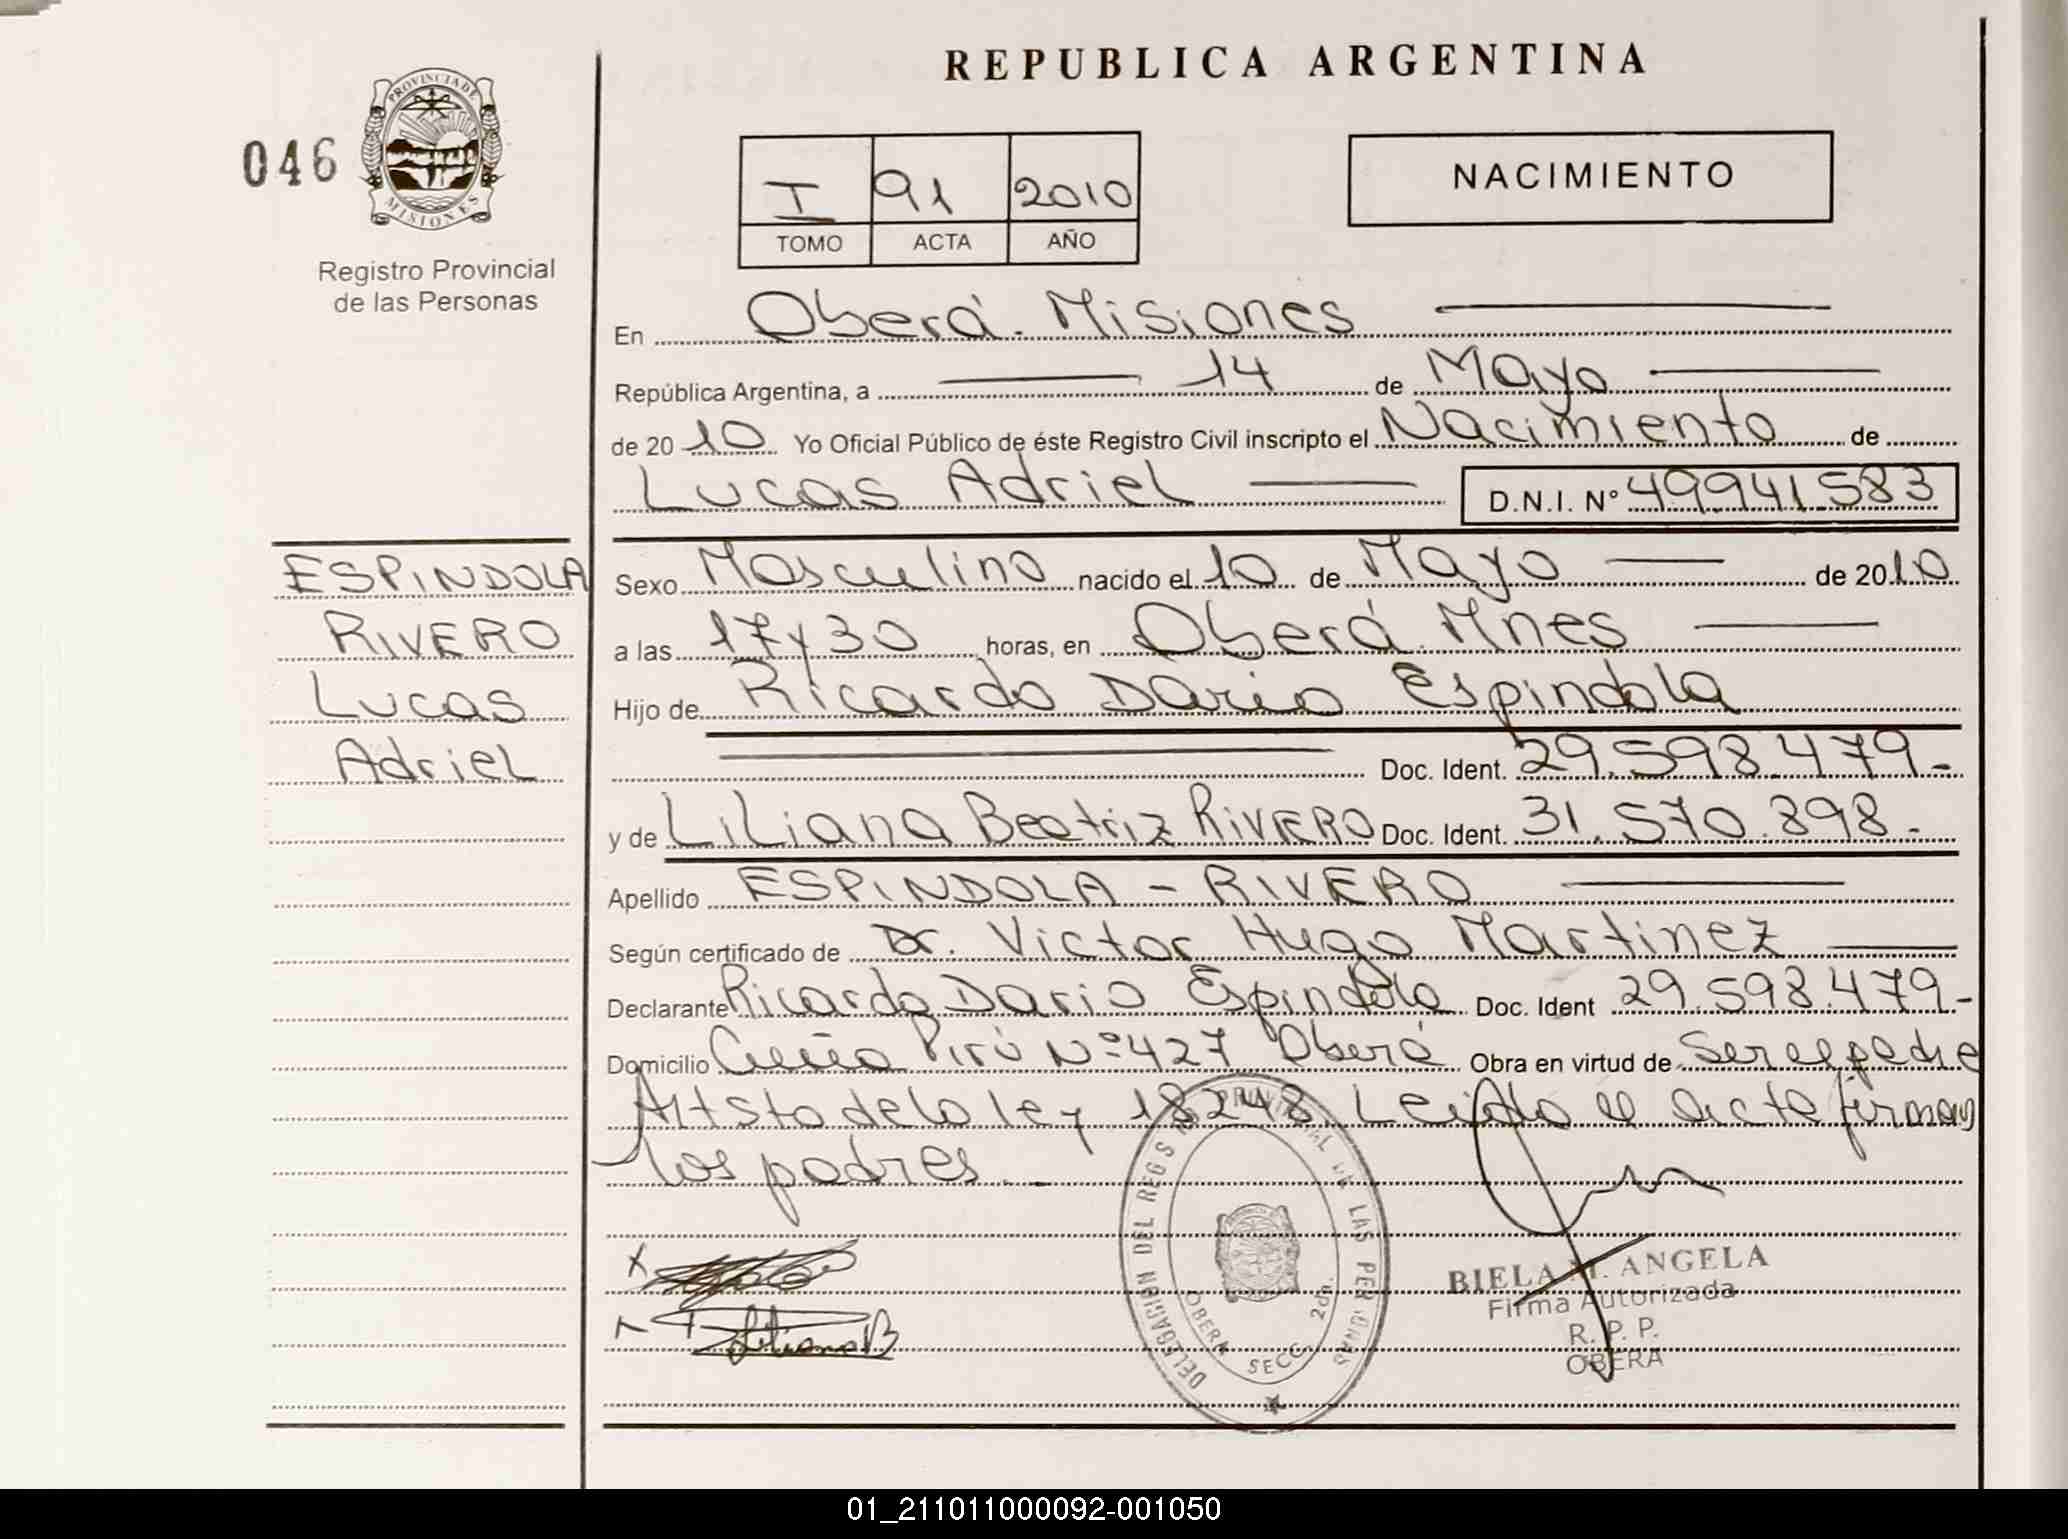 REPUBLICA ARGENTINA
PROVINCIA DE
MISIONES
046
Registro Provincial
de las Personas
I 91 2010
TOMO ACTA AÑO
NACIMIENTO
En Oberá. Misiones
República Argentina, a 14 de Mayo
de 20 10 Yo Oficial Público de éste Registro Civil inscripto el Nacimiento de
Lucas Adriel D.N.I. Nº 49941.583
ESPINDOLA
RIVERO
Lucas
Adriel
Sexo Masculino nacido el 10 de Mayo de 2010
a las 17 y 30 horas, en Oberá. Mnes
Hijo de Ricardo Dario Espindola
Doc. Ident. 29.598.479.-
y de Liliana Beatriz RIVERO Doc. Ident. 31.570.898.-
Apellido ESPINDOLA - RIVERO
Según certificado de Dr. Victor Hugo Martinez
Declarante Ricardo Dario Espindola Doc. Ident 29.598.479-
Domicilio Cuña Pirú Nº 427 Oberá Obra en virtud de Ser el padre
Art 5to de la ley 18248 Leida el acta firman
los padres.-
DELEGACION DEL REGS PROVINCIAL DE LAS PERSONAS
OBERA SECC. 2da.
X
Liliana B
BIELA M. ANGELA
Firma Autorizada
R. P. P.
OBERA
01_211011000092-001050